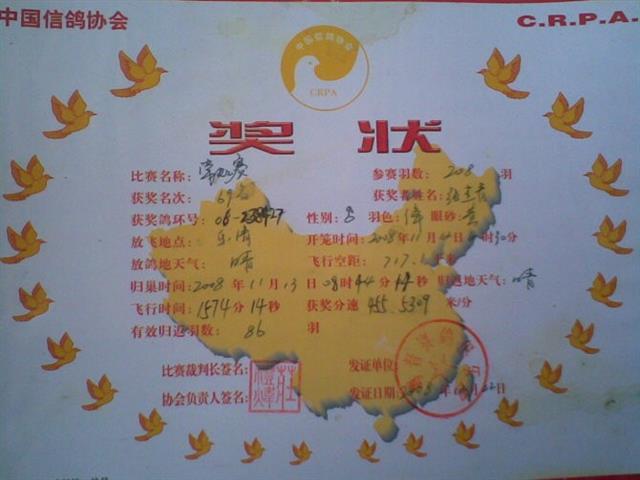 中国信鸽协会 C.R.P.A.
中国信鸽协会
CRPA
奖状
比赛名称: 参赛羽数:208羽
获奖名次:69名 获奖者姓名:
获奖鸽环号:08- 性别: 羽色: 眼砂:黄
放飞地点:乐清 开笼时间:2008年11月 日 时30分
放鸽地天气:晴 飞行空距:717. 千米
归巢时间:2008年11月13日08时44分14秒 归返地天气:晴
飞行时间:1574分14秒 获奖分速455.5309米/分
有效归返羽数:86羽
比赛裁判长签名: 发证单位:
协会负责人签名: 发证日期: 年 月 日